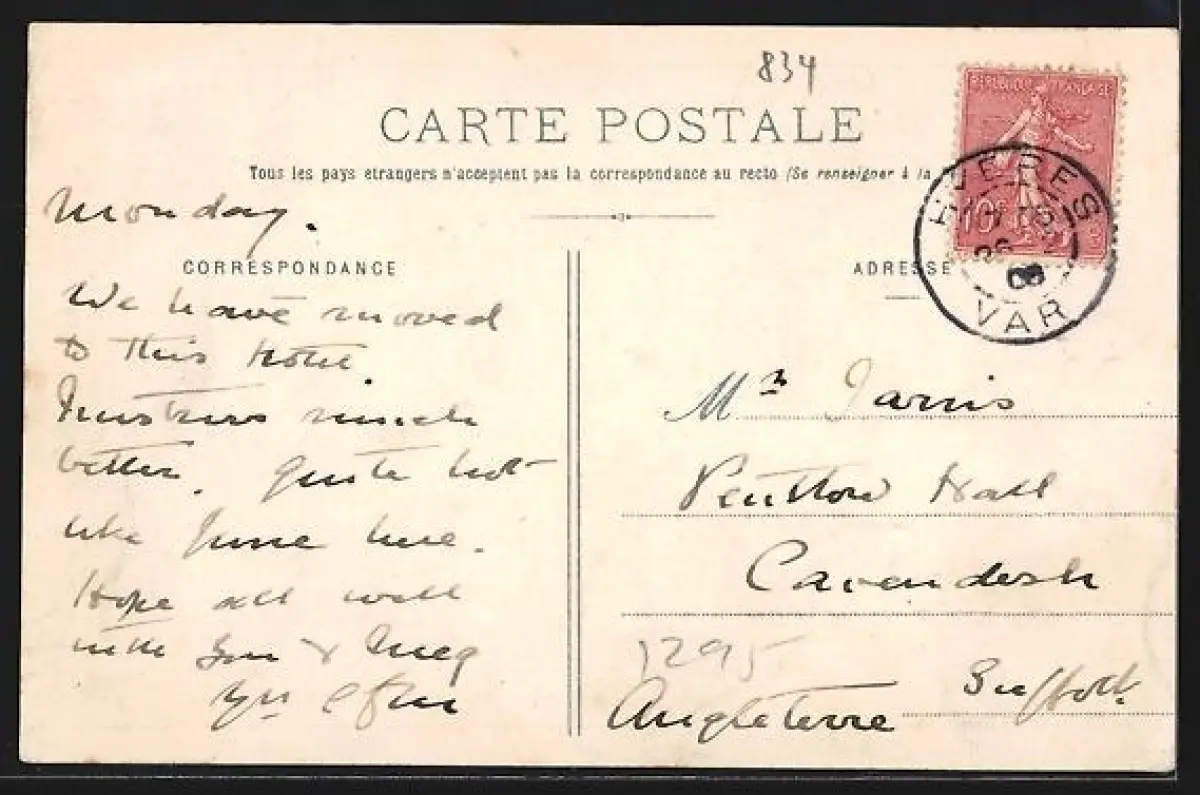 834
REPUBLIQUE FRANÇAISE
10
CARTE POSTALE
Tous les pays etrangers n'acceptent pas la correspondance au recto (Se renseigner à la
HYERES
VAR
Monday.
CORRESPONDANCE
ADRESSE
We have moved
to this Hotel.
much
better. Quite hot
like June here.
Hope all well
with you & Meg
Mrs Jarvis
Hall
Cavendish
1295
Suffolk
Angleterre